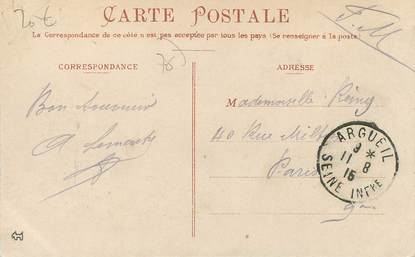 20€
CARTE POSTALE
F.M
La Correspondance de ce côté n'est pas acceptée par tous les pays (Se renseigner à la poste)
CORRESPONDANCE
Bon Souvenir
A
ADRESSE
Mademoiselle Rémy
40 Rue
Paris
ARGUEIL
9 *
11 8
15
SEINE INFRE